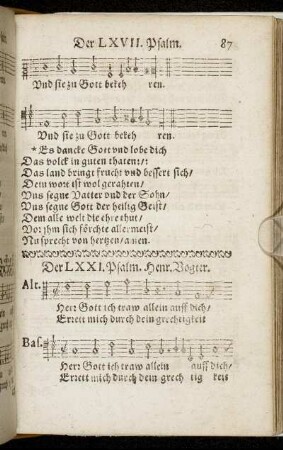 Der LXVII. Psalm. 87
Vnd sie zu Gott bekeh ren.
Vnd sie zu Gott bekeh ren.
* Es dancke Gott vnd lobe dich
Das volck in guten thaten:/:
Das land bringt frucht vnd bessert sich/
Dein wort ist wol gerahten/
Vns segne Vatter vnd der Sohn/
Vns segne Gott der heilig Geist/
Dem alle welt die ehre thut/
Vor jhm sich förchte allermeist/
Nu sprecht von hertzen/amen.
Der LXXI. Psalm. Henr. Vogter.
Alt.
Herr Gott ich traw allein auff dich/
Errett mich durch dein grechtigkeit
Bas.
Herr Gott ich traw allein auff dich/
Errett mich durch dein grech tig keit